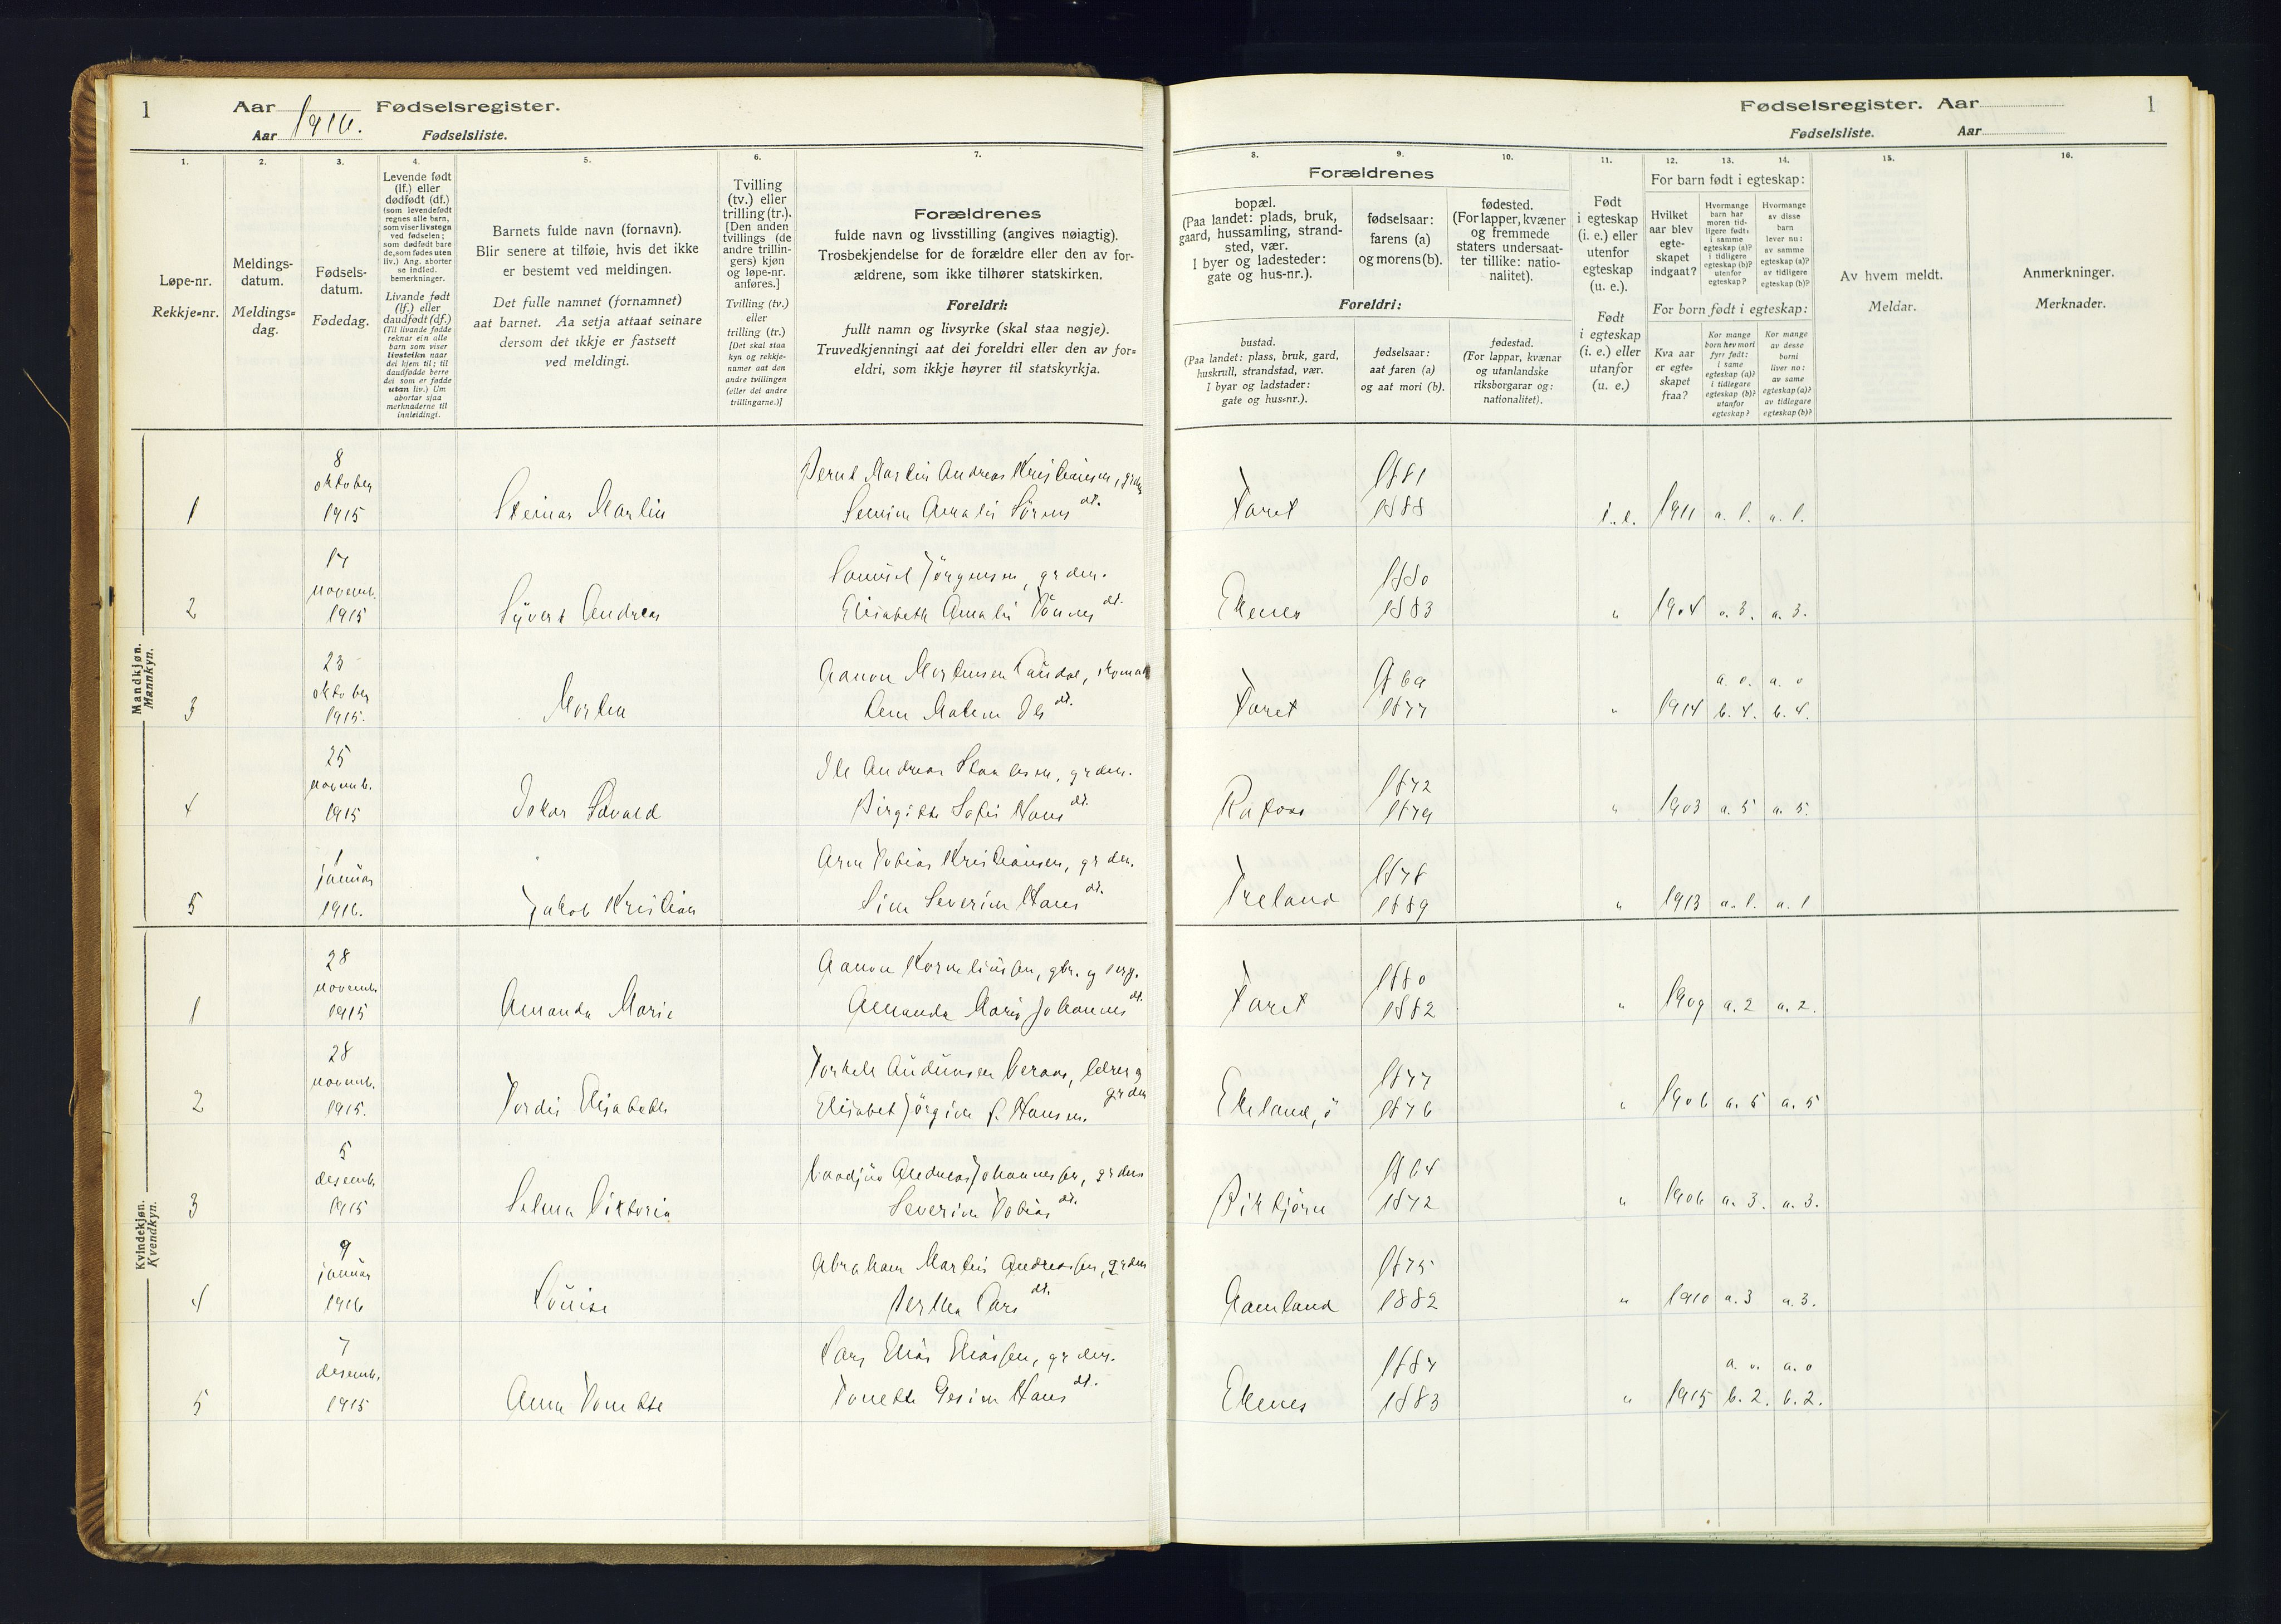 1
Aar 1916. Fødselsregister.
Aar Fødselsliste.
1.
2.
3.
4.
5.
6.
7.
Løpe-nr.
Rekkje=nr.
Meldings-
datum.
Meldings=
dag.
Fødsels-
datum.
Fødedag.
Levende født
(lf.) eller
dødfødt (df.)
(som levendefødt
regnes alle barn,
som viser livstegn
ved fødselen;
som dødfødt bare
de, som fødes uten
liv.) Ang. aborter
se indled.
bemerkninger.
Livande født
(lf.) eller
daudfødt (df.)
(Til livande fødde
reknar ein alle
barn som viser
livsteikn naar
dei kjem til; til
daudfødde berre
dei som er fødde
utan liv.) Um
abortar sjaa
merknaderne til
innleidingi.
Barnets fulde navn (fornavn).
Blir senere at tilføie, hvis det ikke
er bestemt ved meldingen.
Det fulle namnet (fornamnet)
aat barnet. Aa setja attaat seinare
dersom det ikkje er fastsett
ved meldingi.
Tvilling
(tv.) eller
trilling (tr.).
[Den anden
tvillings (de
andre trillin-
gers) kjøn
og løpe-nr.
anføres.]
Tvilling (tv.)
eller
trilling (tr.)
[Det skal staa
kyn og rekkje-
numer aat den
andre tvillingen
(eller dei andre
trillingarne.)]
Forældrenes
fulde navn og livsstilling (angives nøiagtig).
Trosbekjendelse for de forældre eller den av for-
ældrene, som ikke tilhører statskirken.
Foreldri:
fullt namn og livsyrke (skal staa nøgje).
Truvedkjenningi aat dei foreldri eller den av for=
eldri, som ikkje høyrer til statskyrkja.
Fødselsregister. Aar
1
Fødselsliste. Aar
8.
9.
10.
11.
12.
13.
14.
15.
16.
Forældrenes
bopæl.
(Paa landet: plads, bruk,
gaard, hussamling, strand-
sted, vær.
I byer og ladesteder:
gate og hus-nr.).
fødselsaar:
farens (a)
og morens (b).
fødested.
(For lapper, kvæner
og fremmede
staters undersaat-
ter tillike: natio-
nalitet).
Foreldri:
bustad.
(Paa landet: plass, bruk, gard,
huskrull, strandstad, vær.
I byar og ladstader:
gate og hus=nr.).
fødselsaar:
aat faren (a)
og aat mori (b).
fødestad.
(For lappar, kvænar
og utanlandske
riksborgarar og:
nationalitet).
Født
i egteskap
(i. e.) eller
utenfor
egteskap
(u. e.).
Født
i egteskap
(i. e.) eller
utanfor
(u. e.)
For barn født i egteskap:
Hvilket
aar blev
egte-
skapet
indgaat?
Hvormange
barn har
moren tid-
ligere født:
i samme
egteskap (a)?
i tidligere
egteskap (b)?
utenfor
egteskap?
Hvormange
av disse
barn
lever nu:
av samme
egteskap (a)?
av tidligere
egteskap (b)?
For born født i egteskap:
Kva aar
er egte=
skapet
fraa?
Kor mange
born hev mori
fyrr født:
i same
egteskap (a)?
i tidlegare
egteskap (b)?
utanfor
egteskap?
Kor mange
av desse
borni
liver no:
av same
egteskap (a)?
av tidlegare
egteskap (b)?
Av hvem meldt.
Meldar.
Anmerkninger.
Merknader.
Mandkjøn.
Mannkyn.
1
8
oktober
1915
Steinar Martin
Bernt Martin Andreas Kristiansen, grdm
Amalie Sørens dt.
Foret
1881
1888
i. e. 1911 a. 1. a. 1.
2
17
novemb.
1915
Syvert Andreas
Samuel Jørgensen, grdm.
Elisabeth Amalie Tønnes dt.
Ekenes
1880
1883
" 1904 a. 3. a. 3.
3
23
oktober
1915.
Morten
Aanon Mortensen
Malene Ols dt.
Foret
1869
1877
" 1914
a. o. a. o
b. 4. b. 4.
4
25
novemb.
1915
Oskar
Ole Andreas
grdm.
Birgitte Sofie Hans dt.
Rafoss
1872
1879
" 1903 a. 5 a. 5.
5
1
januar
1916.
Jakob Kristian
Arne Tobias Kristiansen, grdm.
Sine Severine Hans dt.
Treland
1878
1889
" 1913 a. 1. a. 1
Kvindekjøn.
Kvendkyn.
1
28
novemb.
1915
Amanda Marie
Aanon Korneliussen, gbr. og
Amanda Marie Johannes dt.
Foret
1880
1882
" 1909 a. 2 a. 2.
2
28
novemb.
1915.
Tordis Elisabeth
Torkele Audunsen lærer g
grdm
Elisabet Jørgine f. Hansen.
Ekeland, ö
1877
1876
" 1906 a. 5 a. 5
3
5
desemb.
1915
Selma Viktoria
Andreas Johannessen, grdm
Severine Tobias dt.
Birkjørn
1864
1872
" 1906 a. 3. a. 3.
4
9
januar
1916
Louise
Abraham Martin Andreassen, grdm
Berthe Lars dt.
Gamland
1875
1882
" 1910 a. 3 a. 3.
5
7
desemb.
1915
Anna Tonette
Lars Elias Eliassen, grdm.
Tonette Gesine Hans dt.
Ekenes
1884
1883
" 1915
a. o. a. o
b. 2. b. 2.